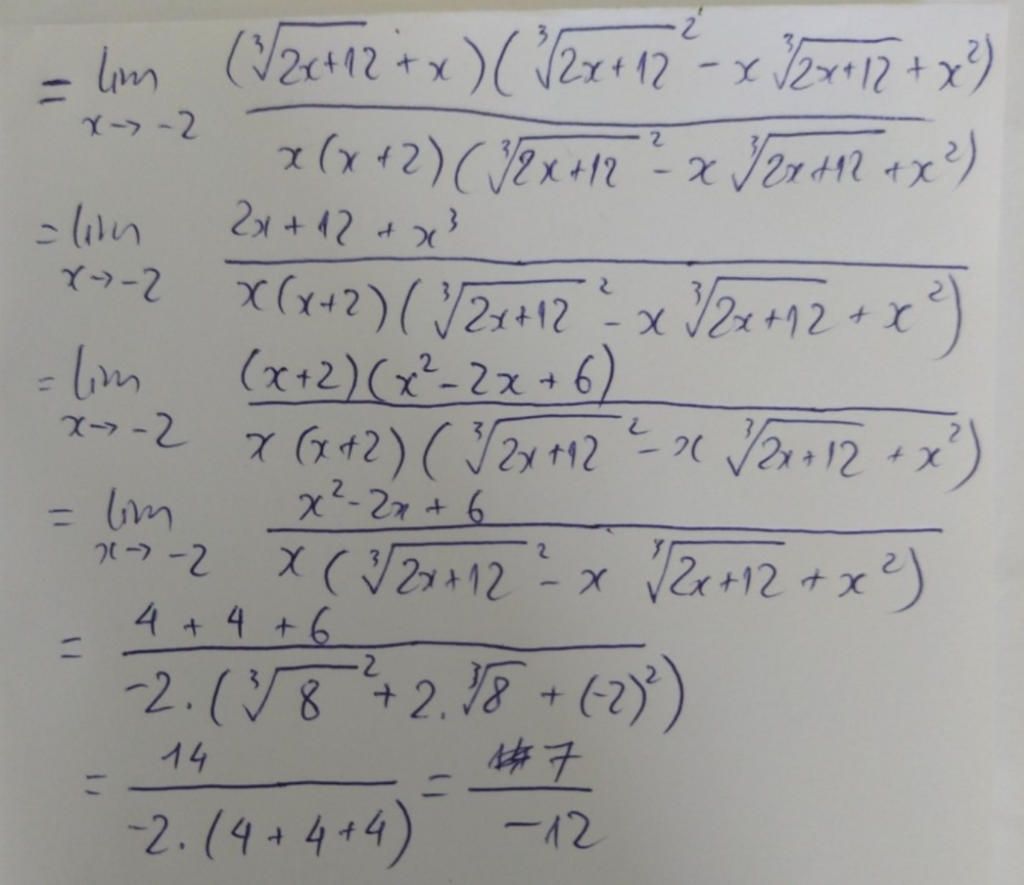 = lim x→-2 (∛(2x+12) + x)(∛(2x+12)² - x∛(2x+12) + x²) / x(x+2)(∛(2x+12)² - x∛(2x+12) + x²)
= lim x→-2 2x+12 + x³ / x(x+2)(∛(2x+12)² - x∛(2x+12) + x²)
= lim x→-2 (x+2)(x²-2x+6) / x(x+2)(∛(2x+12)² - x∛(2x+12) + x²)
= lim x→-2 x²-2x+6 / x(∛(2x+12)² - x∛(2x+12) + x²)
= 4+4+6 / -2.(∛8² + 2.∛8 + (-2)²)
= 14 / -2.(4+4+4) = 7 / -12